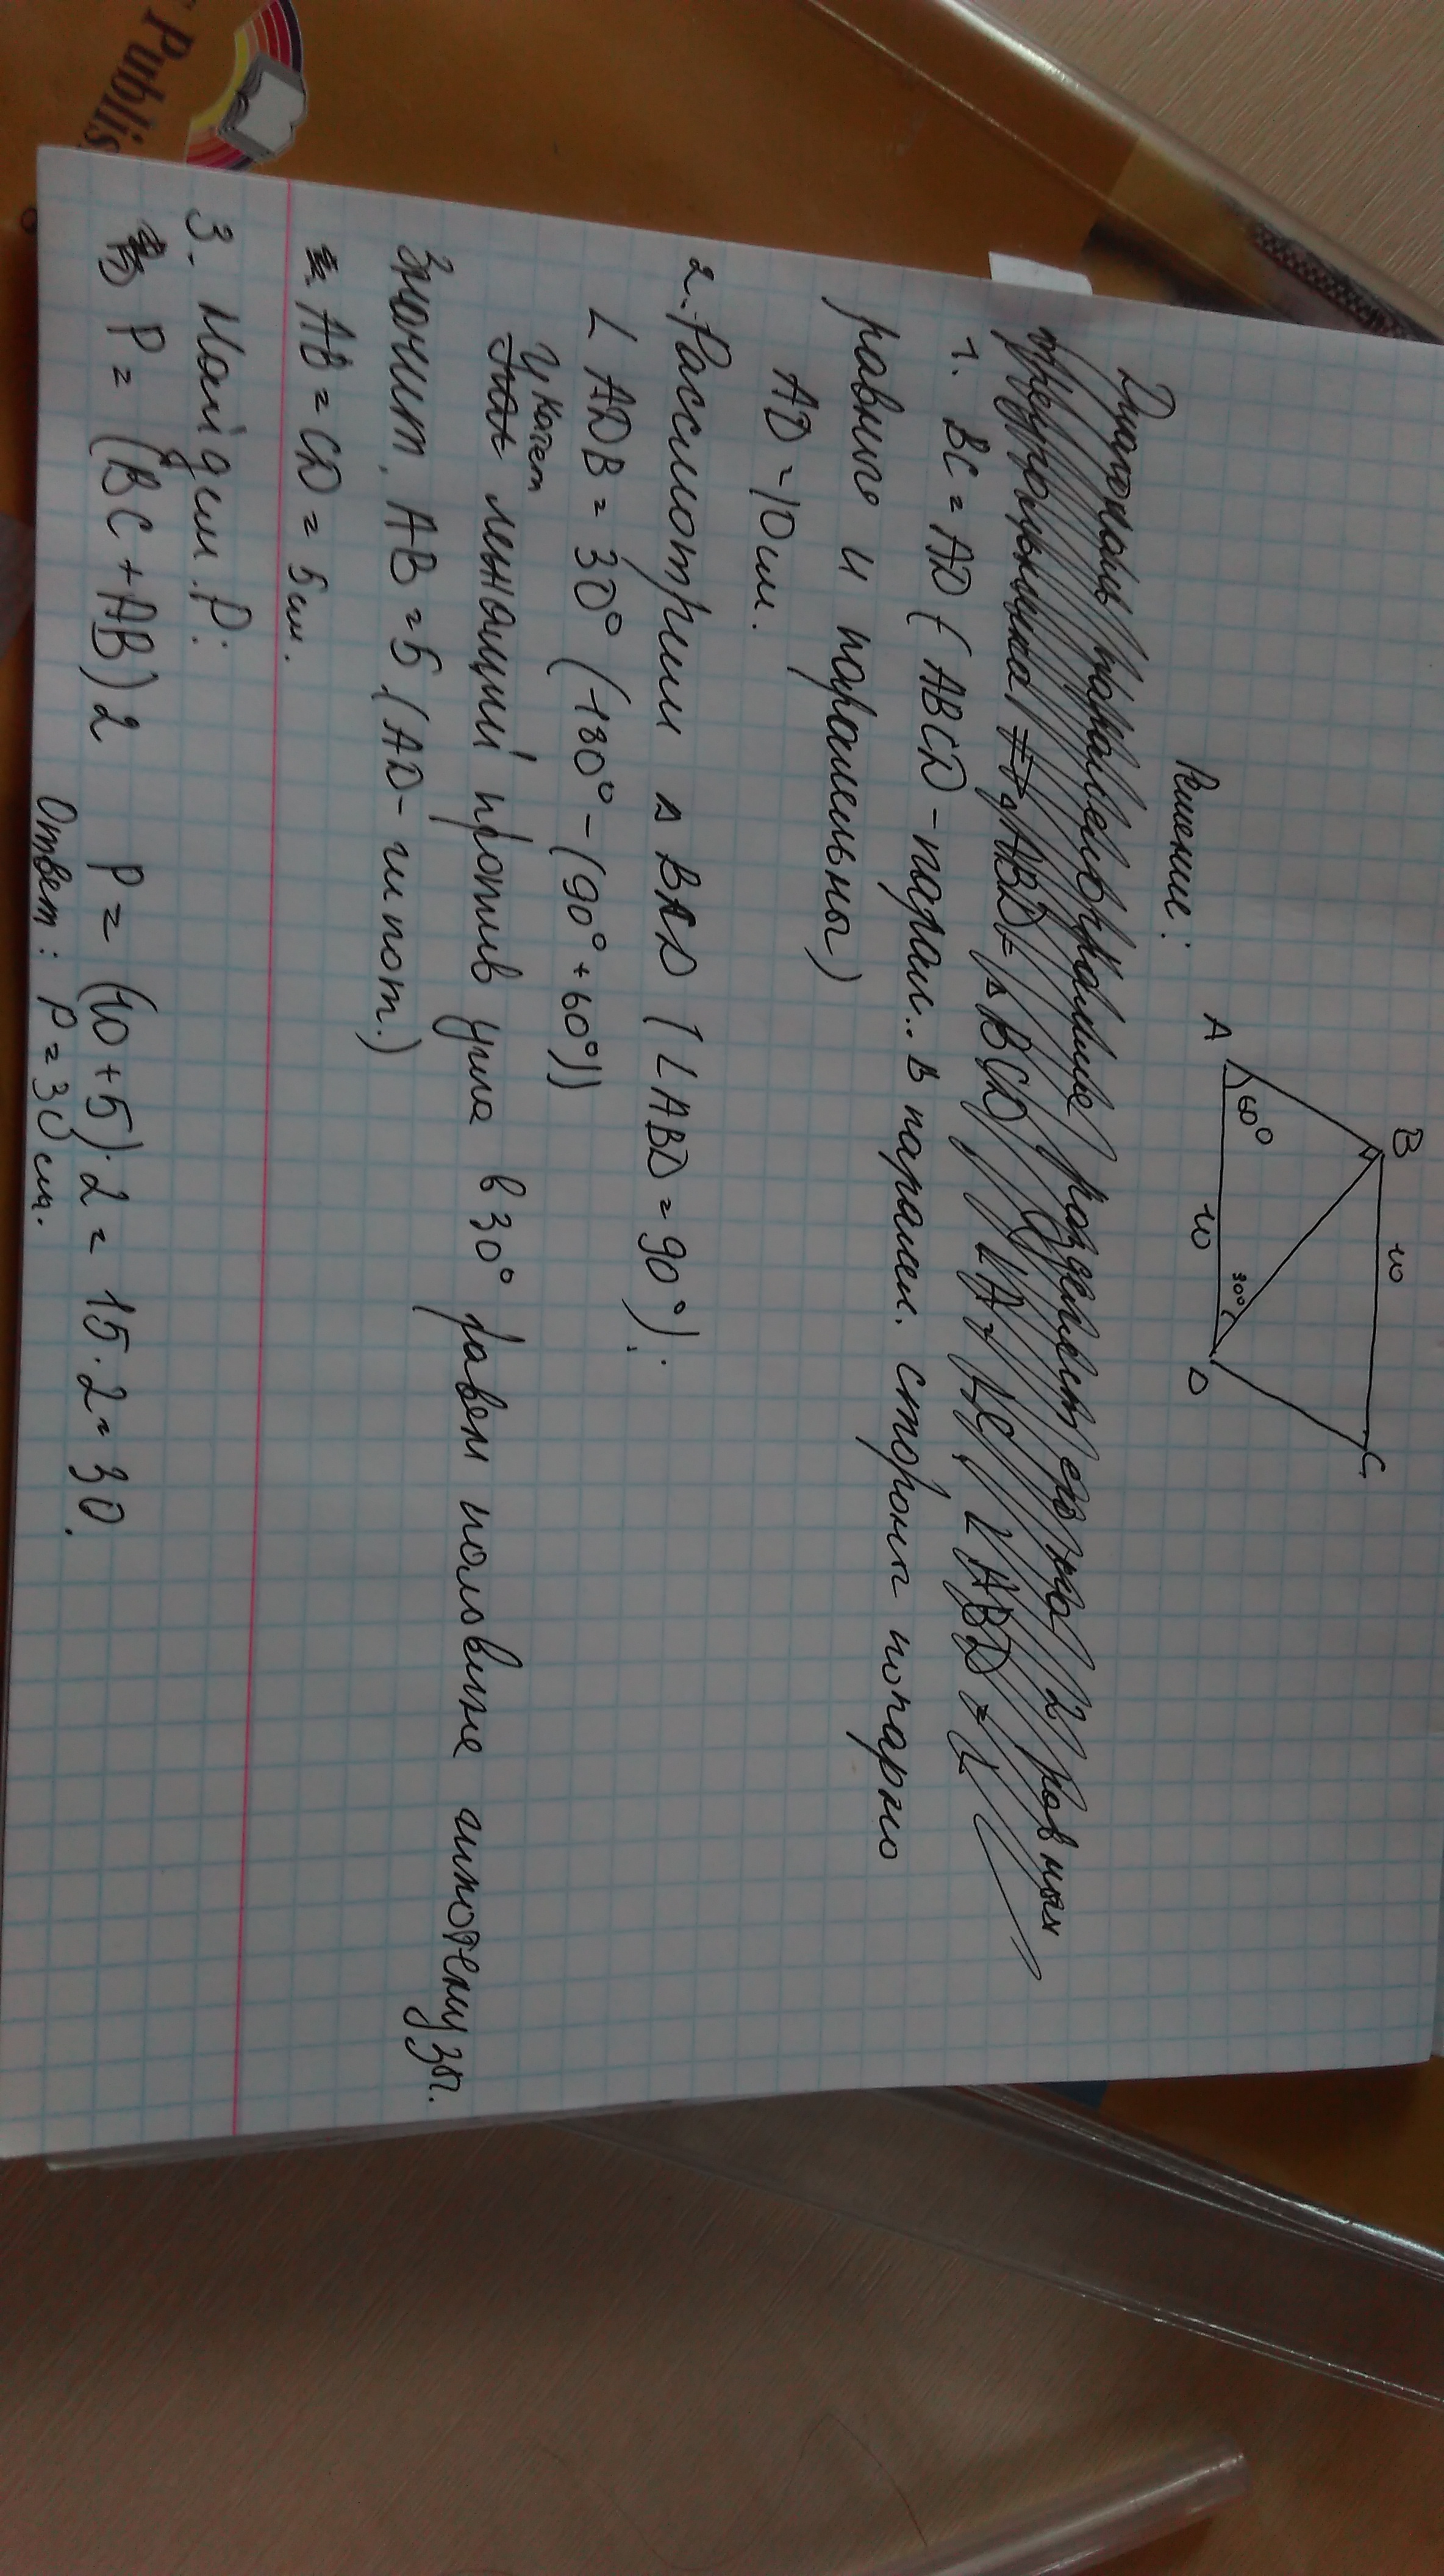 Publis
B
10
C
A
60°
10
30°
D
Решение:
Диагональ параллелограмма разделяет его на 2 равных
треугольника ABD = ▵ BCD, ∠A = ∠C, ∠ABD = ∠
1. BC = AD (ABCD - парал.. в парал. стороны попарно
равные и паралельны)
AD = 10 см.
2. Рассмотрим ▵ BAD (∠ABD = 90°):
∠ADB = 30° (180° - (90° + 60°))
катет
лежащий против угла в 30° равен половине гипотенузы.
Значит, AB = 5 (AD - гипот.)
AB = CD = 5 см.
3. Найдем P:
P = (BC + AB) 2 P = (10 + 5) · 2 = 15 · 2 = 30.
Ответ: P = 30 см.